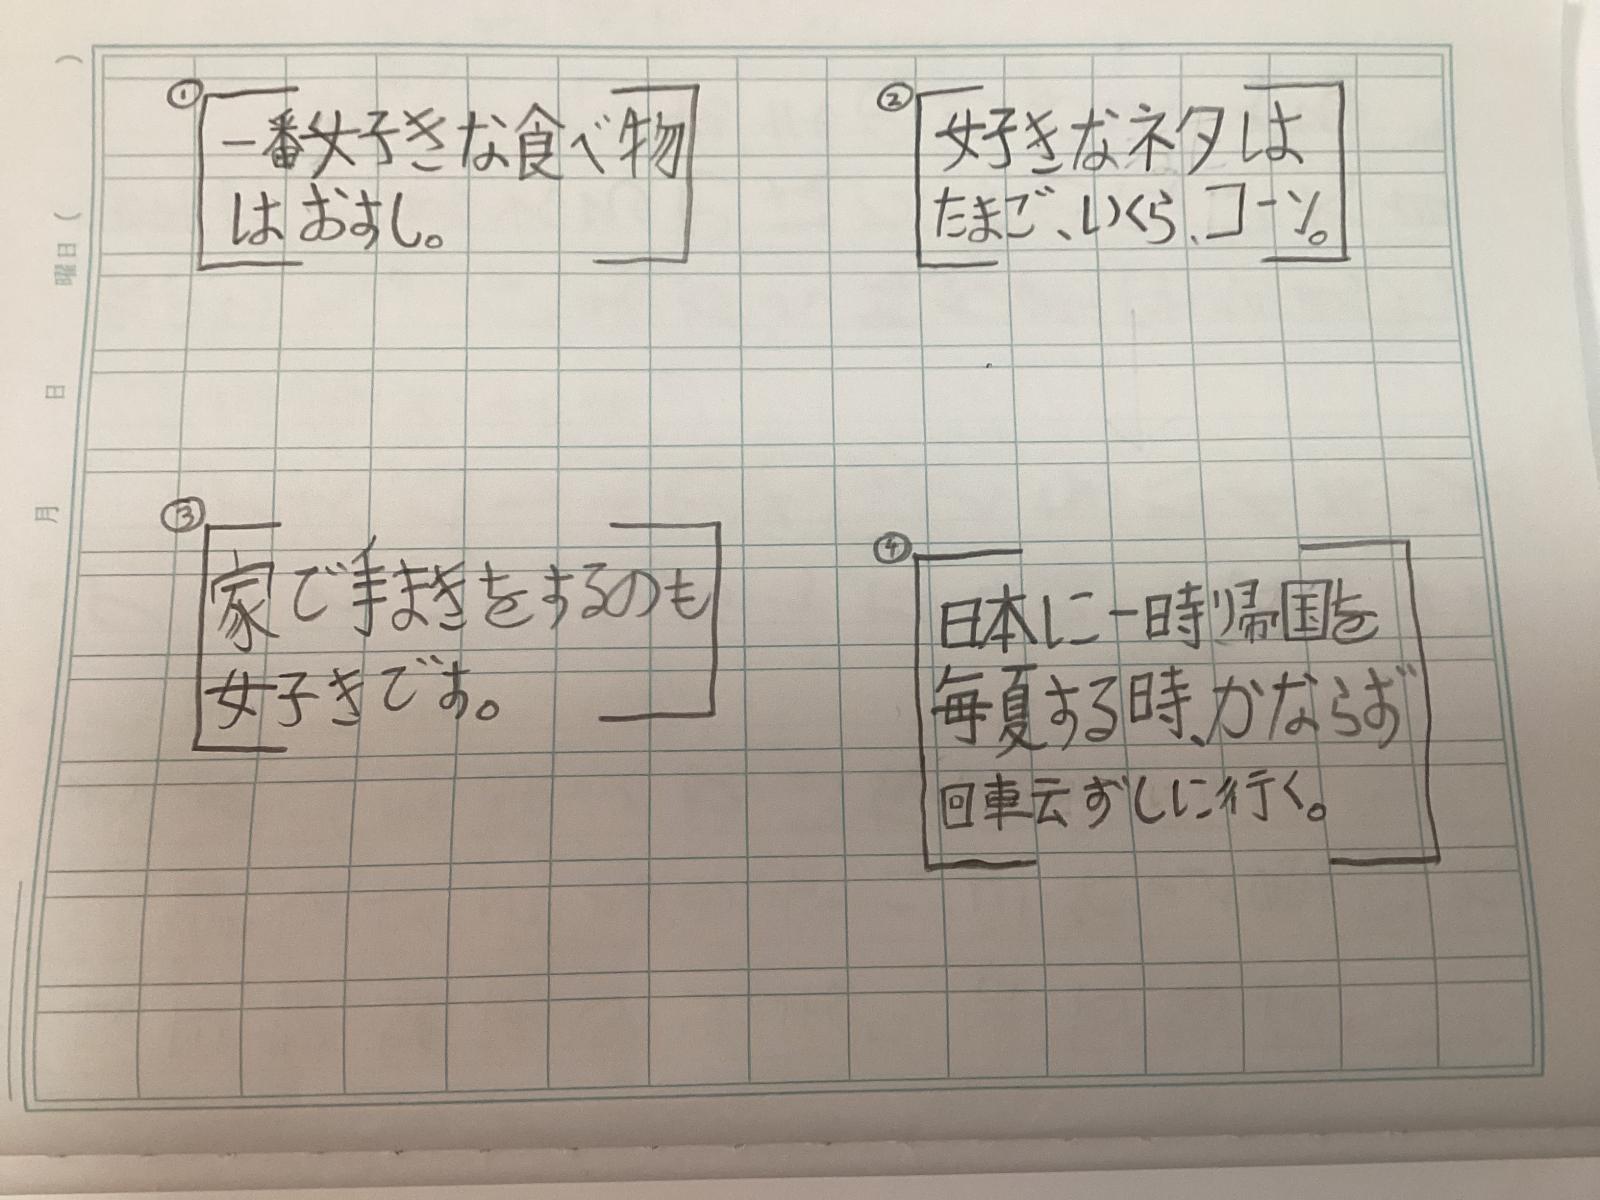 ①
一番好きな食べ物
はおすし。
②
好きなネタは
たまご、いくら、コーン。
③
家で手まきをするのも
好きです。
④
日本に一時帰国を
毎夏する時、かならず
回車云ずしに行く。
月 日 曜日( )